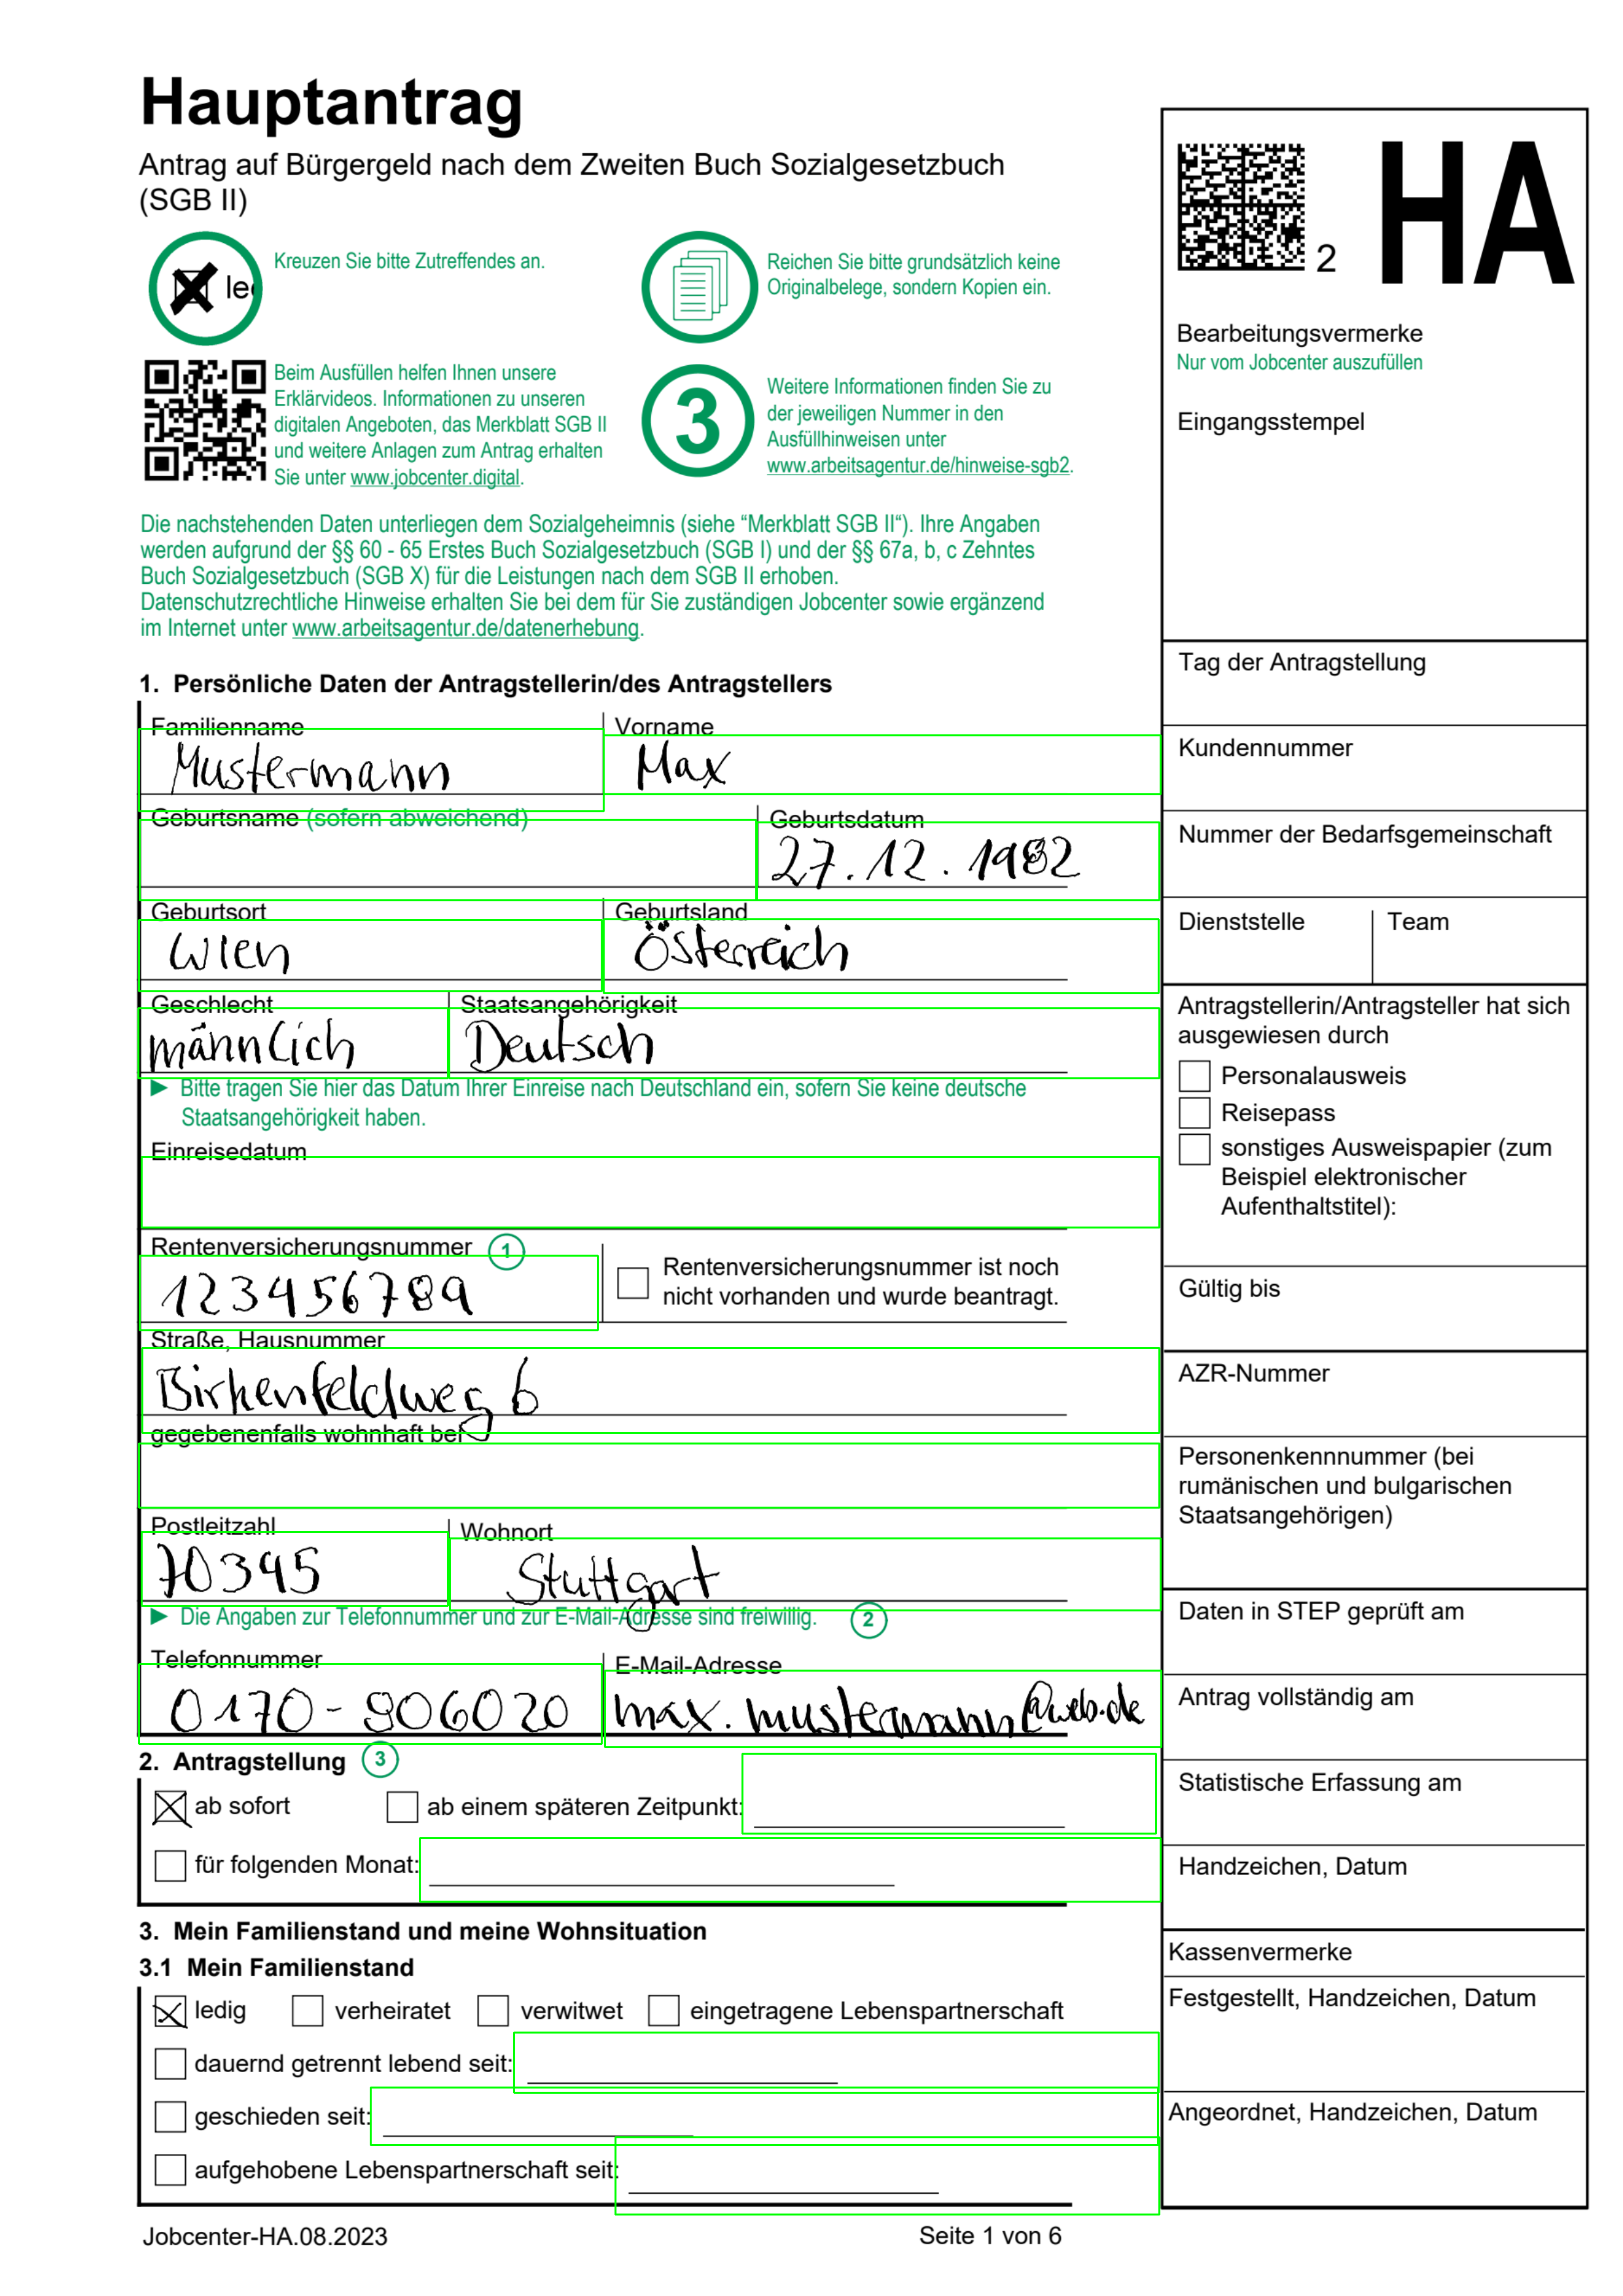 Hauptantrag
Antrag auf Bürgergeld nach dem Zweiten Buch Sozialgesetzbuch
(SGB II)
led
Kreuzen Sie bitte Zutreffendes an.
Reichen Sie bitte grundsätzlich keine
Originalbelege, sondern Kopien ein.
Beim Ausfüllen helfen Ihnen unsere
Erklärvideos. Informationen zu unseren
digitalen Angeboten, das Merkblatt SGB II
und weitere Anlagen zum Antrag erhalten
Sie unter www.jobcenter.digital.
3
Weitere Informationen finden Sie zu
der jeweiligen Nummer in den
Ausfüllhinweisen unter
www.arbeitsagentur.de/hinweise-sgb2.
Die nachstehenden Daten unterliegen dem Sozialgeheimnis (siehe “Merkblatt SGB II“). Ihre Angaben
werden aufgrund der §§ 60 - 65 Erstes Buch Sozialgesetzbuch (SGB I) und der §§ 67a, b, c Zehntes
Buch Sozialgesetzbuch (SGB X) für die Leistungen nach dem SGB II erhoben.
Datenschutzrechtliche Hinweise erhalten Sie bei dem für Sie zuständigen Jobcenter sowie ergänzend
im Internet unter www.arbeitsagentur.de/datenerhebung.
1. Persönliche Daten der Antragstellerin/des Antragstellers
Familienname
Mustermann
Vorname
Max
Geburtsname (sofern abweichend)
Geburtsdatum
27.12.1982
Geburtsort
Wien
Geburtsland
Österreich
Geschlecht
männlich
Staatsangehörigkeit
Deutsch
Bitte tragen Sie hier das Datum Ihrer Einreise nach Deutschland ein, sofern Sie keine deutsche
Staatsangehörigkeit haben.
Einreisedatum
Rentenversicherungsnummer 1
123456789
Rentenversicherungsnummer ist noch
nicht vorhanden und wurde beantragt.
Straße, Hausnummer
Birkenfeldweg 6
gegebenenfalls wohnhaft bei
Postleitzahl
70345
Wohnort
Stuttgart
Die Angaben zur Telefonnummer und zur E-Mail-Adresse sind freiwillig. 2
Telefonnummer
0170-906020
E-Mail-Adresse
max.mustermann@web.de
2. Antragstellung 3
ab sofort
ab einem späteren Zeitpunkt:
für folgenden Monat:
3. Mein Familienstand und meine Wohnsituation
3.1 Mein Familienstand
ledig verheiratet verwitwet eingetragene Lebenspartnerschaft
dauernd getrennt lebend seit:
geschieden seit:
aufgehobene Lebenspartnerschaft seit:
Jobcenter-HA.08.2023
Seite 1 von 6
2 HA
Bearbeitungsvermerke
Nur vom Jobcenter auszufüllen
Eingangsstempel
Tag der Antragstellung
Kundennummer
Nummer der Bedarfsgemeinschaft
Dienststelle
Team
Antragstellerin/Antragsteller hat sich
ausgewiesen durch
Personalausweis
Reisepass
sonstiges Ausweispapier (zum
Beispiel elektronischer
Aufenthaltstitel):
Gültig bis
AZR-Nummer
Personenkennnummer (bei
rumänischen und bulgarischen
Staatsangehörigen)
Daten in STEP geprüft am
Antrag vollständig am
Statistische Erfassung am
Handzeichen, Datum
Kassenvermerke
Festgestellt, Handzeichen, Datum
Angeordnet, Handzeichen, Datum